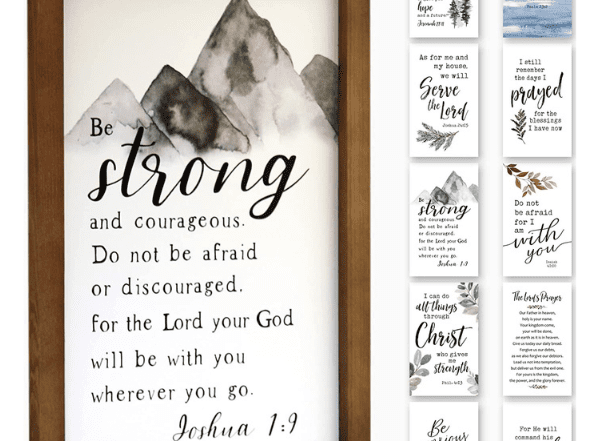 Be
strong
and courageous.
Do not be afraid
or discouraged,
for the Lord your God
will be with you
wherever you go.
Joshua 1:9
hope
and a future
Jeremiah 29:11
As for me and
my house,
we will
Serve
the Lord
Joshua 24:15
I still
remember
the days I
prayed
for the
blessings
I have now
Be
strong
and courageous.
Do not be afraid
or discouraged,
for the Lord your God
will be with you
wherever you go.
Joshua 1:9
Do not
be afraid
for I
am
with
you
Isaiah
I can do
all things
through
Christ
who gives
me
strength
The Lord's Prayer
Our Father in heaven,
Holy is your name.
Your kingdom come,
your will be done,
on earth as it is in heaven.
Give us today our daily bread.
Forgive us our debts,
as we also forgive our debtors.
Lead us not into temptation,
but deliver us from the evil one.
For yours is the kingdom,
the power, and the glory forever.
Be
For He will
command his